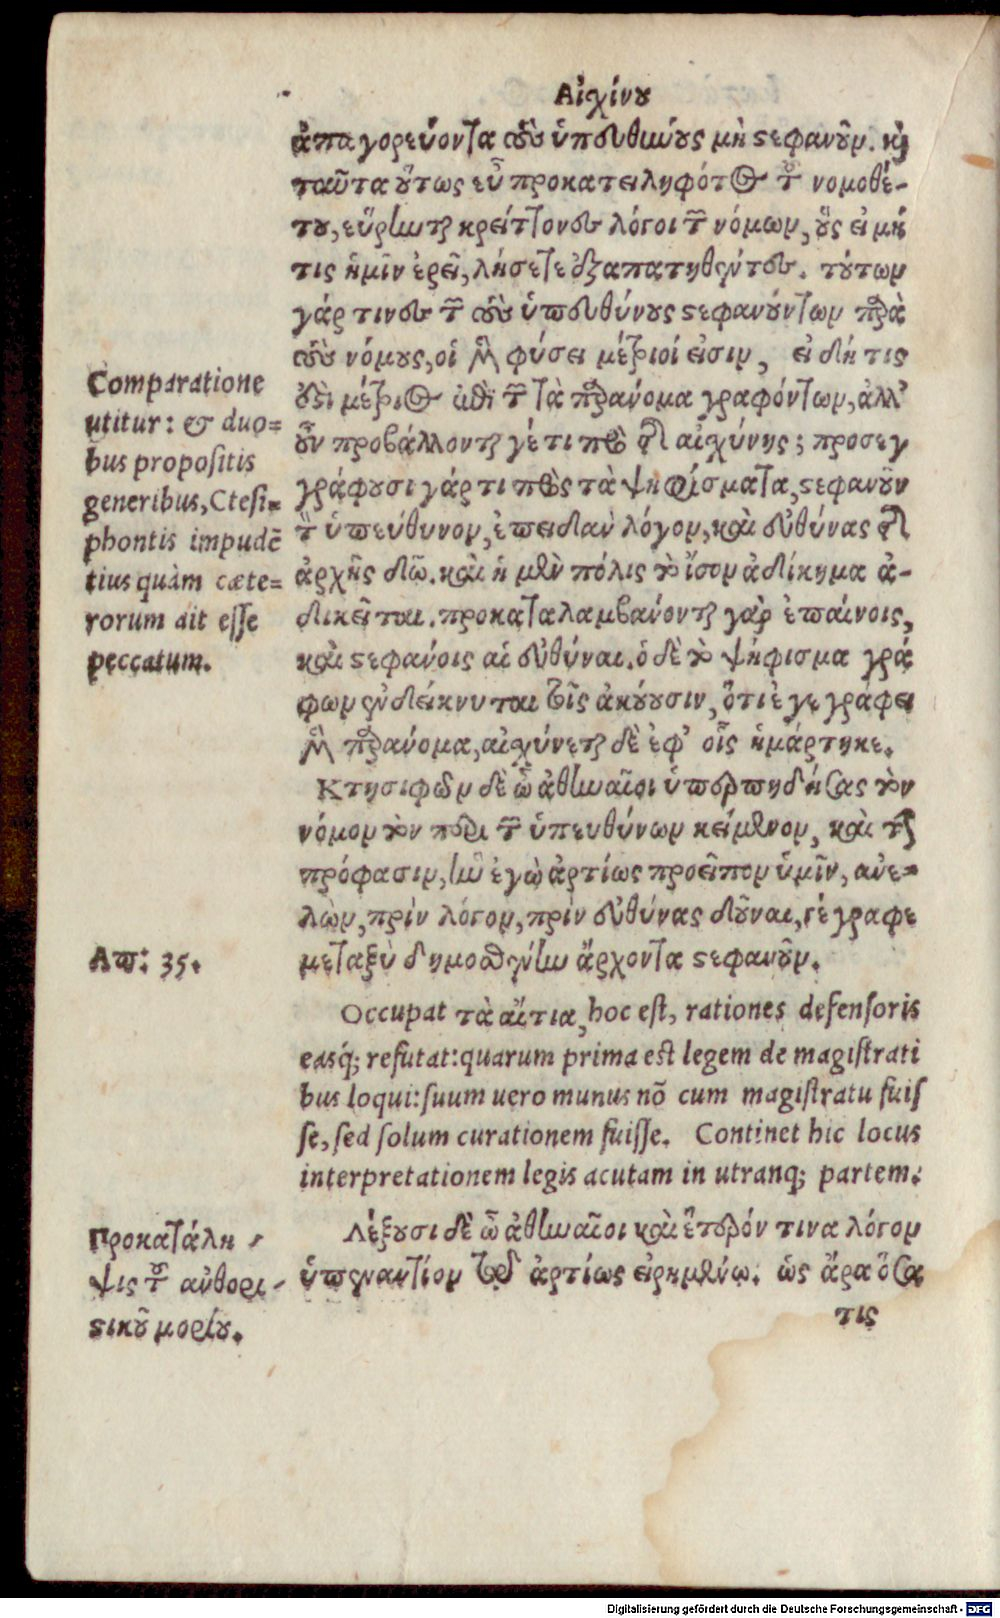 Αἰχίνου
ἀπαγορεύοντα τοὺς ὑπευθύνους μὴ στεφανοῦν. καὶ
ταῦτα οὕτως εὖ προκατειληφότος τοῦ νομοθέ-
του, εὕρηνται κρείττονες λόγοι τῶν νόμων, οὓς εἰ μή
τις ἡμῖν ἐρεῖ, λήσετε ἐξαπατηθέντες. τούτων
γάρ τινες τῶν τοὺς ὑπευθύνους στεφανούντων παρὰ
τοὺς νόμους, οἱ μὲν φύσει μέτριοί εἰσιν, εἰ δή τις
ὅστι μέτριος ἐστὶ τῶν τὰ παράνομα γραφόντων, ἀλλ'
οὖν προβάλλονταί γέ τι πρὸ τῆς αἰχύνης; προσεγ
γράφουσι γάρ τι πρὸς τὰ ψηφίσματα, στεφανοῦν
τὸν ὑπεύθυνον, ἐπειδὰν λόγον, καὶ εὐθύνας τῆς
ἀρχῆς δῶ. καὶ ἡ μὲν πόλις τὸ ἴσον ἀδίκημα ἀ-
δικεῖται. προκαταλαμβάνονται γὰρ ἐπαίνοις,
καὶ στεφάνοις αἱ εὐθύναι. ὁ δὲ τὸ ψήφισμα γρά
φων ἐνδείκνυται τοῖς ἀκούουσιν, ὅτι ἐγεγράφει
μὲν παράνομα, αἰχύνεται δὲ ἐφ' οἷς ἡμάρτηκε.
Κτησιφῶν δὲ ὦ ἀθηναῖοι ὑπερπηδήσας τὸν
νόμον τὸν περὶ τῶν ὑπευθύνων κείμενον, καὶ τὴν
πρόφασιν, ἣν ἐγὼ ἀρτίως προεῖπον ὑμῖν, ἀνε-
λὼν, πρὶν λόγον, πρὶν εὐθύνας δοῦναι, γέγραφε
μεταξὺ δημοσθένην ἄρχοντα στεφανοῦν.
Occupat τὰ αἴτια, hoc est, rationes defensoris
easq́; refutat: quarum prima est legem de magistrati
bus loqui: suum uero munus nō cum magistratu fuis
se, sed solum curationem fuisse. Continet hic locus
interpretationem legis acutam in utranq; partem.
Λέξουσι δὲ ὦ ἀθηναῖοι καὶ ἕτερόν τινα λόγον
ὑπεναντίον τῷ ἀρτίως εἰρημένῳ. ὡς ἄρα ὅσα
τις
Comparatione
utitur: & duo=
bus propositis
generibus, Ctesi=
phontis impudē
tius quàm cæte=
rorum ait esse
peccatum.
Απ: 35.
Προκατάλη
ψις τοῦ ἀνθορι-
στικοῦ μορίου.